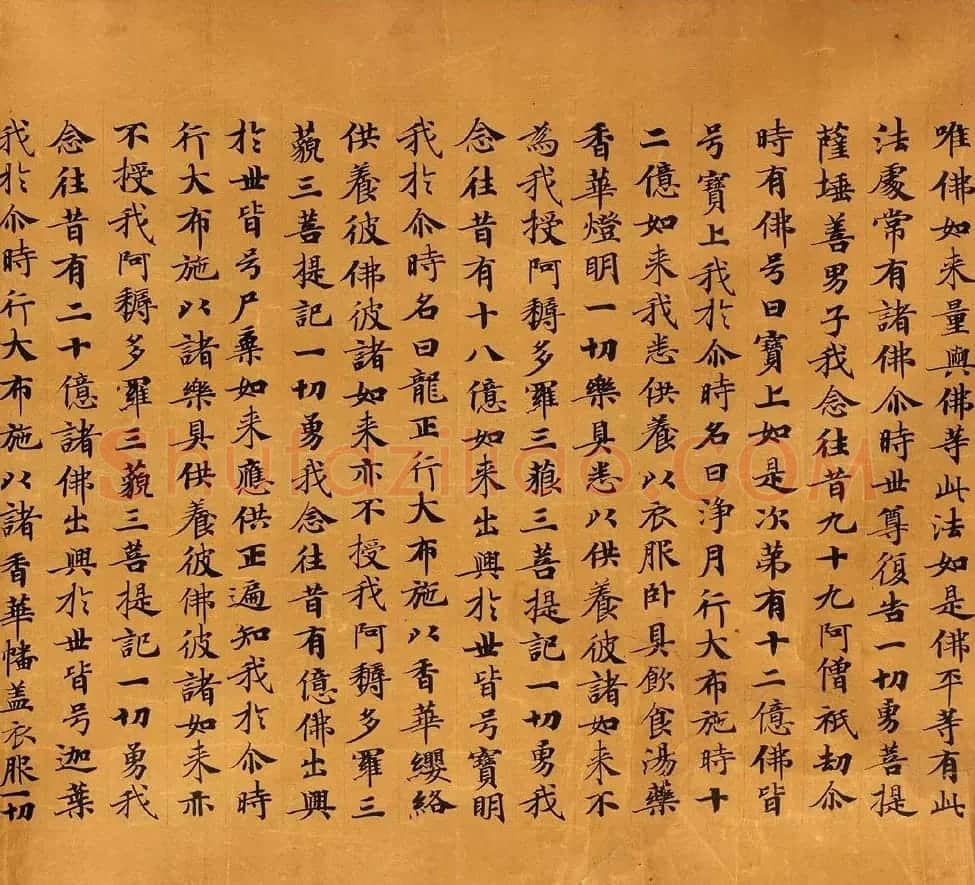 唯佛如来量與佛等此法如是佛平等有此
法處常有諸佛尒時世尊復告一切勇菩提
薩埵善男子我念往昔九十九阿僧祇劫尒
時有佛号曰寶上如是次第有十二億佛皆
号寶上我於尒時名曰浄月行大布施時十
二億如来我悉供養以衣服卧具飲食湯藥
香華燈明一切樂具悉以供養彼諸如来不
為我授阿耨多羅三藐三菩提記一切勇我
念往昔有十八億如来出興於世皆号寶明
我於尒時名曰龍正行大布施以香華纓絡
供養彼佛彼諸如来亦不授我阿耨多羅三
藐三菩提記一切勇我念往昔有億佛出興
於世皆号尸棄如来應供正遍知我於尒時
行大布施以諸樂具供養彼佛彼諸如来亦
不授我阿耨多羅三藐三菩提記一切勇我
念往昔有二十億諸佛出興於世皆号迦葉
我於尒時行大布施以諸香華幡盖衣服一切
Shufaziliao.COM